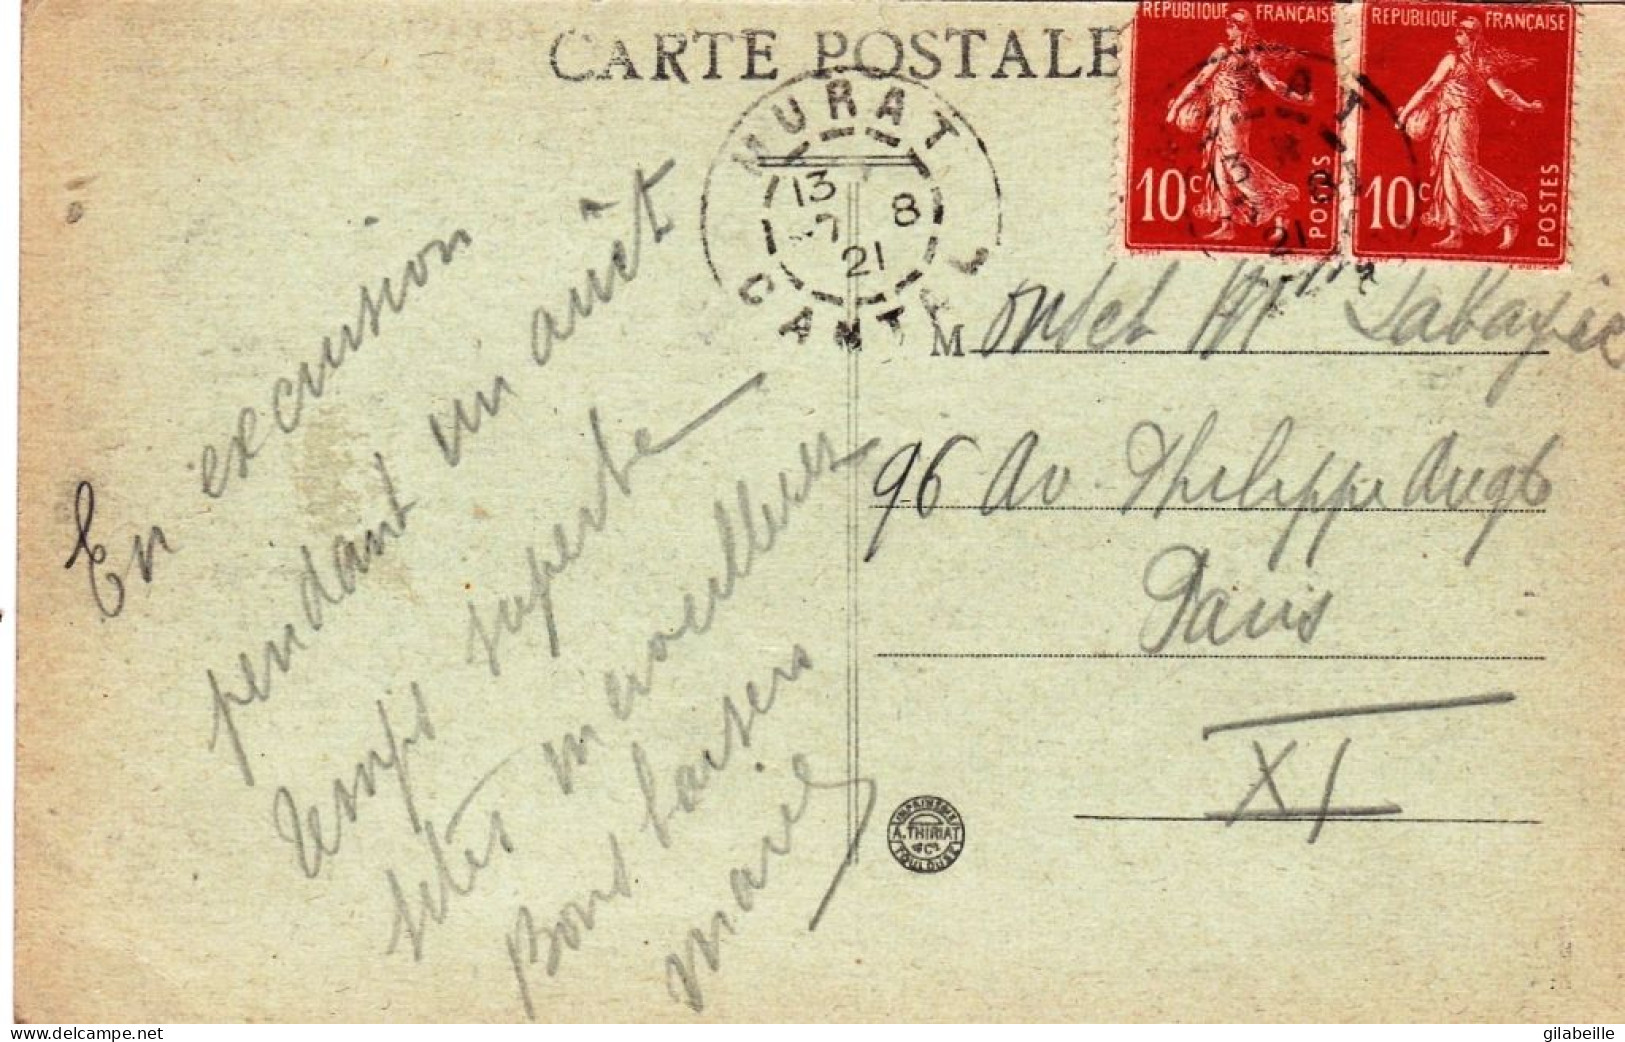 CARTE POSTALE
REPUBLIQUE FRANÇAISE
10c POSTES
REPUBLIQUE FRANÇAISE
10c POSTES
MURAT
13
-7 8
21
CANTAL
RAT
13
8
21
En excursion
pendant un arrêt
temps superbe
sites merveilleux
Bons baisers
Marie
M
96 Av. Philippe Augte
Paris
XI
IMPRIMERIE
A. THIRIAT
& Cie
TOULOUSE
gilabeille